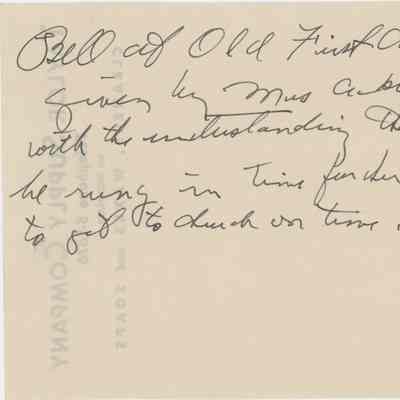 Bell at Old First
given by Mrs
with the understanding
be rung in time for her
to get to church on time
COMPANY
SOAPS